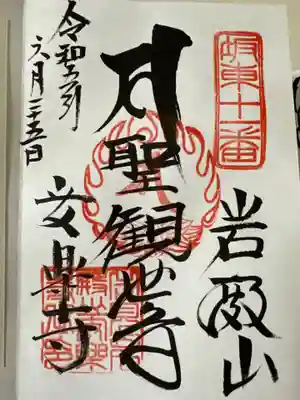 坂東十一番
岩殿山
聖観世音
安楽寺
令和年
六月二十五日